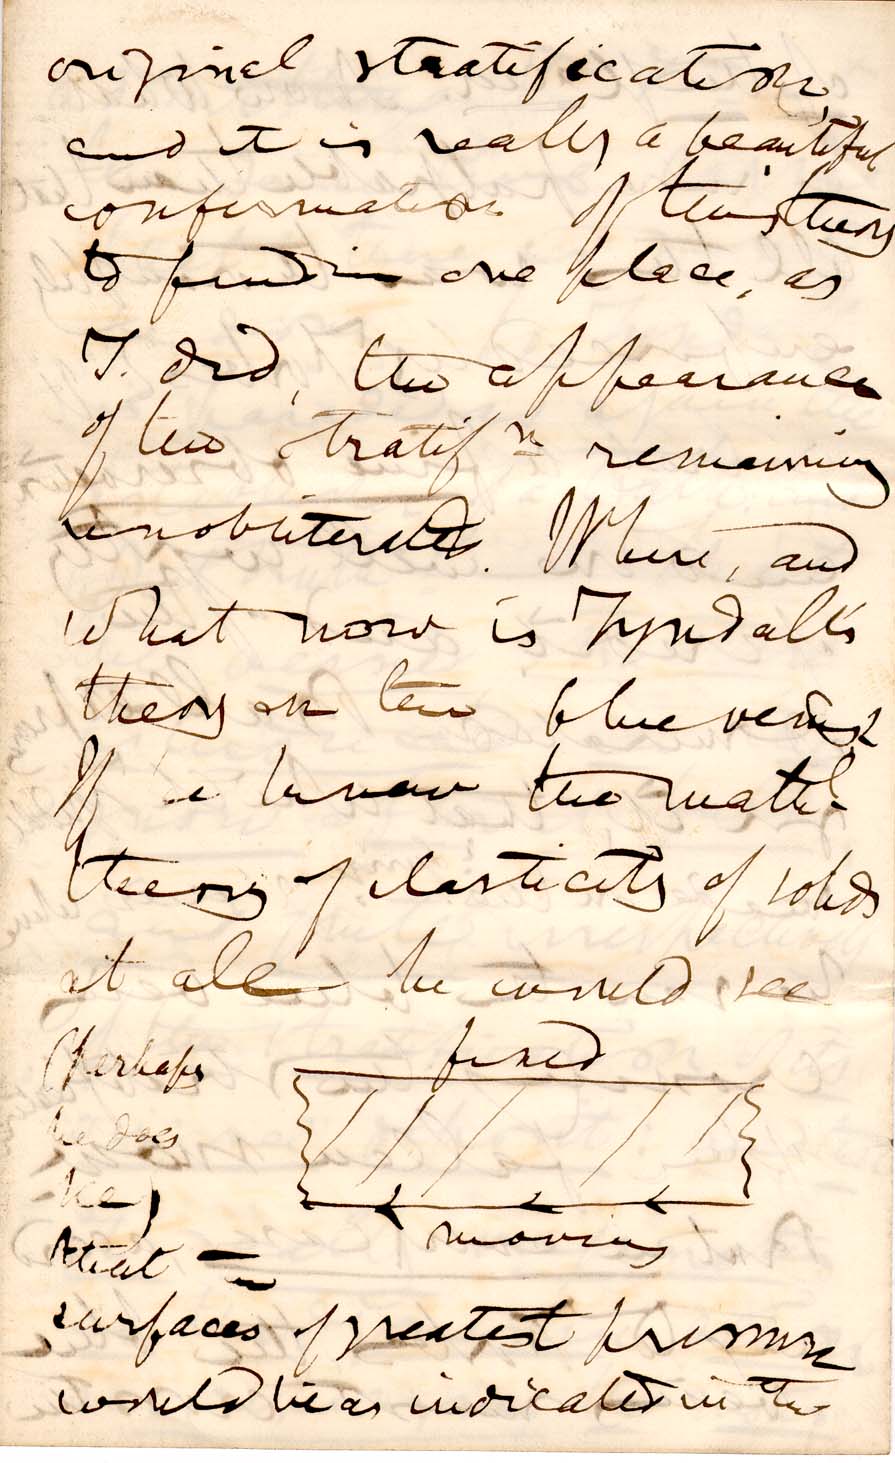 original stratification,
and it is really a beautiful
confirmation of this theory
to find in one place, as
I did, the appearance
of the stratifn remaining
unobliterated. Where, and
what now is Tyndall's
theory on the blue veins?
If he knew the mathl
theory of elasticity of solids
at all he would see
fixed
(perhaps
he does
see)
moving
that
surfaces of greatest pressure
would lie as indicated in the